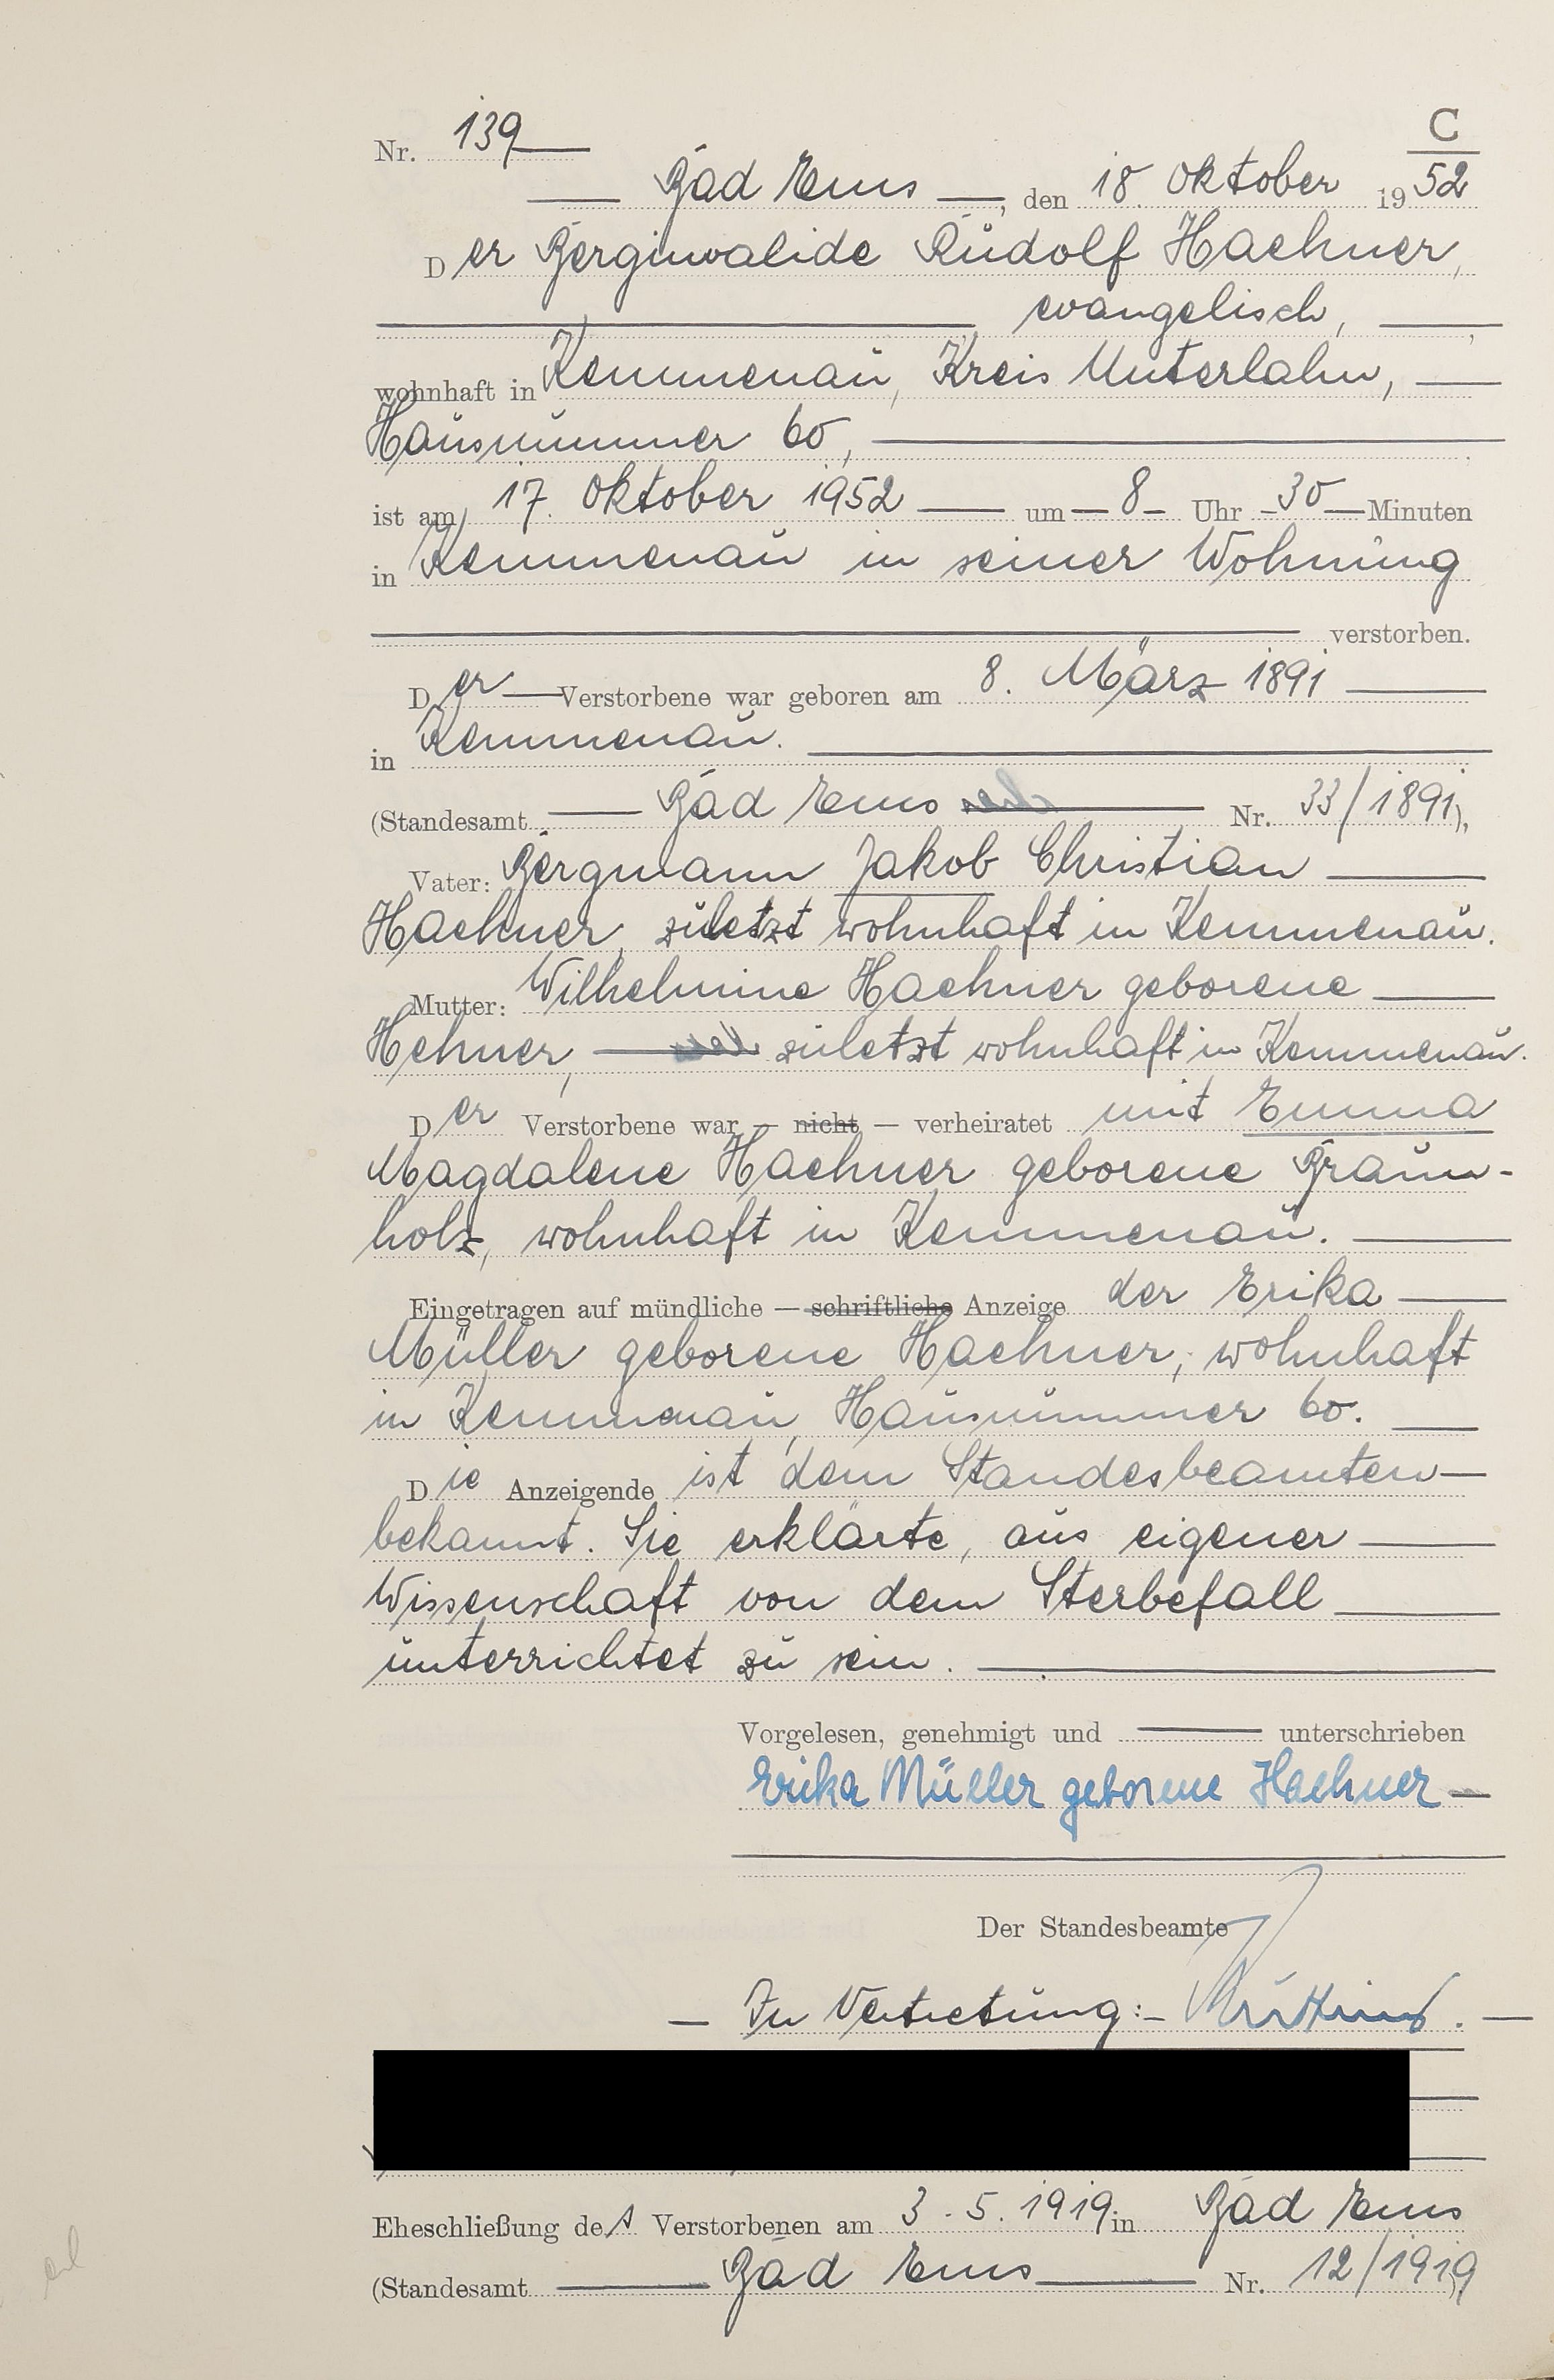 C
Nr. 139
Bad Ems, den 18. Oktober 1952
Der Berginvalide Rudolf Haehner,
evangelisch,
wohnhaft in Kemmenau, Kreis Unterlahn,
Hausnummer 60,
ist am 17. Oktober 1952 um 8 Uhr 30 Minuten
in Kemmenau in seiner Wohnung
verstorben.
Der Verstorbene war geboren am 8. März 1891
in Kemmenau.
(Standesamt Bad Ems Nr. 33/1891),
Vater: Bergmann Jakob Christian
Haehner, zuletzt wohnhaft in Kemmenau.
Mutter: Wilhelmine Haehner geborene
Hehner, zuletzt wohnhaft in Kemmenau.
Der Verstorbene war — nicht — verheiratet mit Emma
Magdalene Haehner geborene Braun-
holz, wohnhaft in Kemmenau.
Eingetragen auf mündliche — schriftliche Anzeige der Erika
Müller geborene Haehner, wohnhaft
in Kemmenau, Hausnummer 60.
Die Anzeigende ist dem Standesbeamten
bekannt. Sie erklärte, aus eigener
Wissenschaft von dem Sterbefall
unterrichtet zu sein.
Vorgelesen, genehmigt und unterschrieben
Erika Müller geborene Haehner
Der Standesbeamte
In Vertretung:
Eheschließung des Verstorbenen am 3.5.1919 in Bad Ems
(Standesamt Bad Ems Nr. 12/1919)